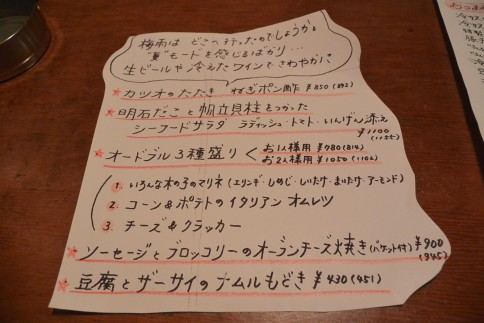 梅雨は どこへ行ったのでしょうか。
"夏"モードを感じるばかり…
生ビールや冷えたワインでさわやかに
★カツオのたたき ねぎポン酢 ¥850(892)
★明石だこと帆立貝柱をつかった
シーフードサラダ ラディッシュ・トマト・いんげん添え
¥1100
(1155)
★オードブル3種盛り < お1人様用 ¥780(819)
お2人様用 ¥1050(1102)
1. いろんな木の子のマリネ(エリンギ・しめじ・しいたけ・まいたけ・アーモンド)
2. コーン&ポテトのイタリアンオムレツ
3. チーズ&クラッカー
★ソーセージとブロッコリーのオーブンチーズ焼き(バケット付) ¥900
(945)
★豆腐とザーサイのナムルもどき ¥430(451)